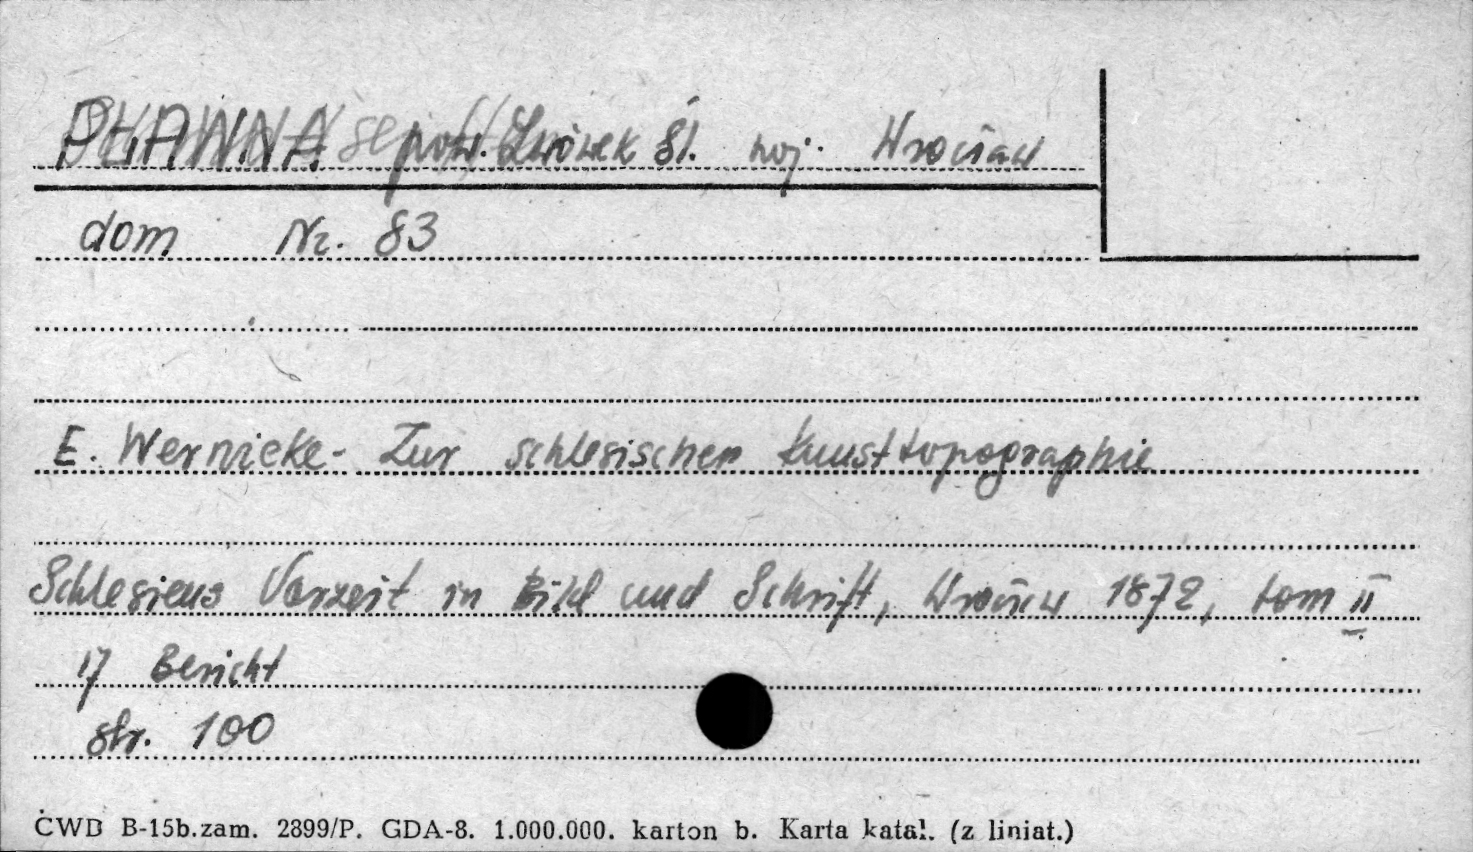 PŁAWNA pow. Lwówek Śl. woj. Wrocław
dom Nr. 83
E. Wernicke - Zur schlesischen Kunsttopographie
Schlesiens Vorzeit in Bild und Schrift, Wrocław 1872, tom II
17 Bericht
str. 100
CWD B-15b.zam. 2899/P. GDA-8. 1.000.000. karton b. Karta katal. (z liniat.)